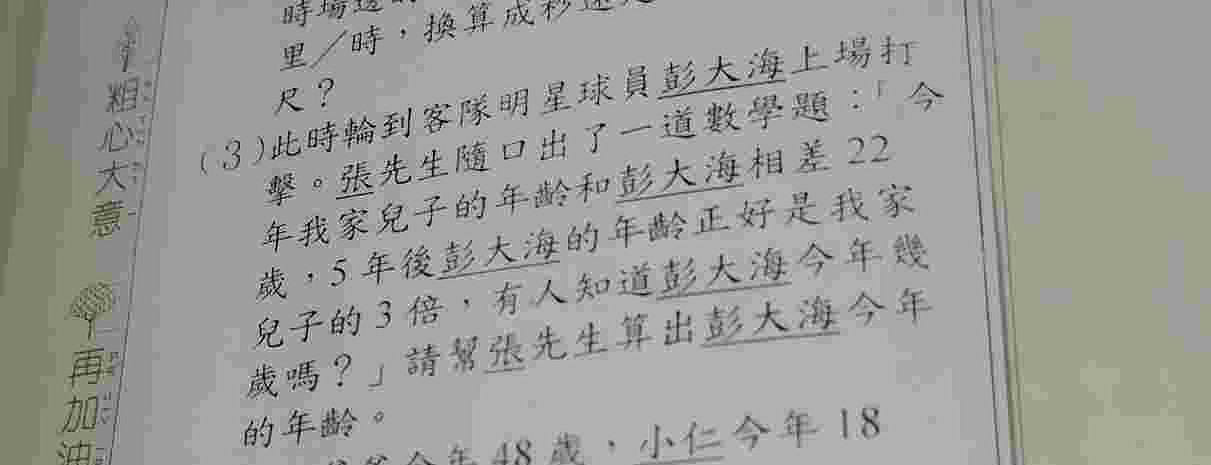 里／時，換算成秒速是
尺？
(3)此時輪到客隊明星球員彭大海上場打
擊。張先生隨口出了一道數學題：「今
年我家兒子的年齡和彭大海相差 22
歲，5 年後彭大海的年齡正好是我家
兒子的 3 倍，有人知道彭大海今年幾
歲嗎？」請幫張先生算出彭大海今年
的年齡。
今年 48 歲，小仁今年 18
粗心大意
再加油